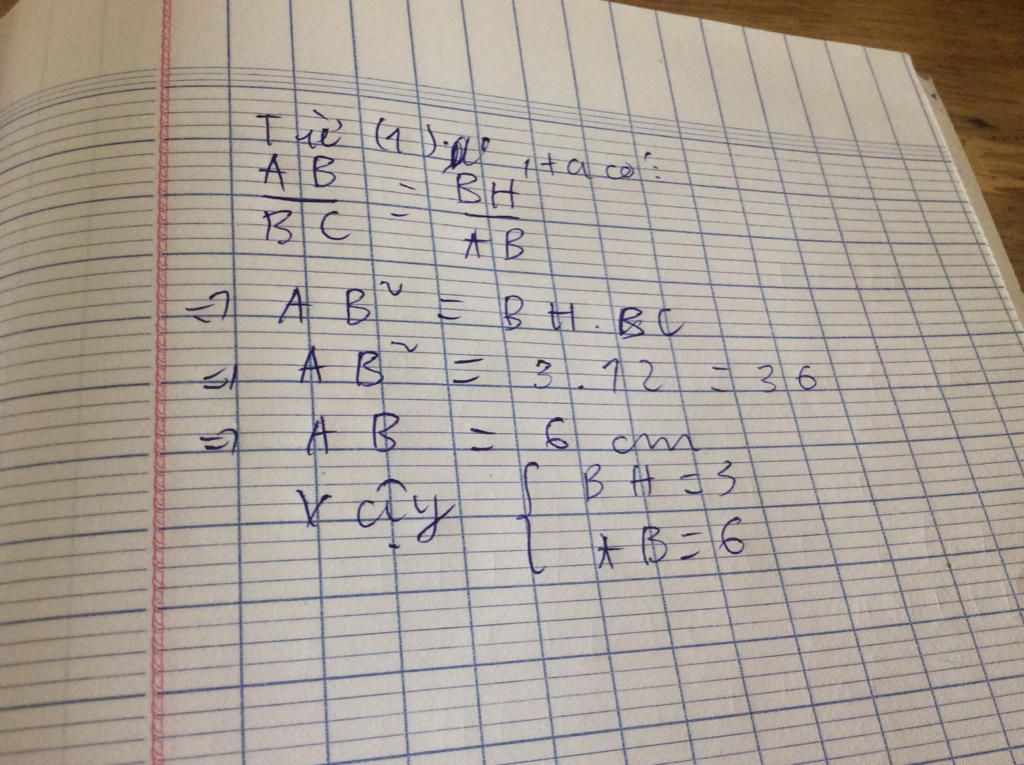 Từ (1), ta có:
AB/BC = BH/AB
=> AB² = BH.BC
=> AB² = 3.12 = 36
=> AB = 6 cm
Vậy { BH = 3
AB = 6